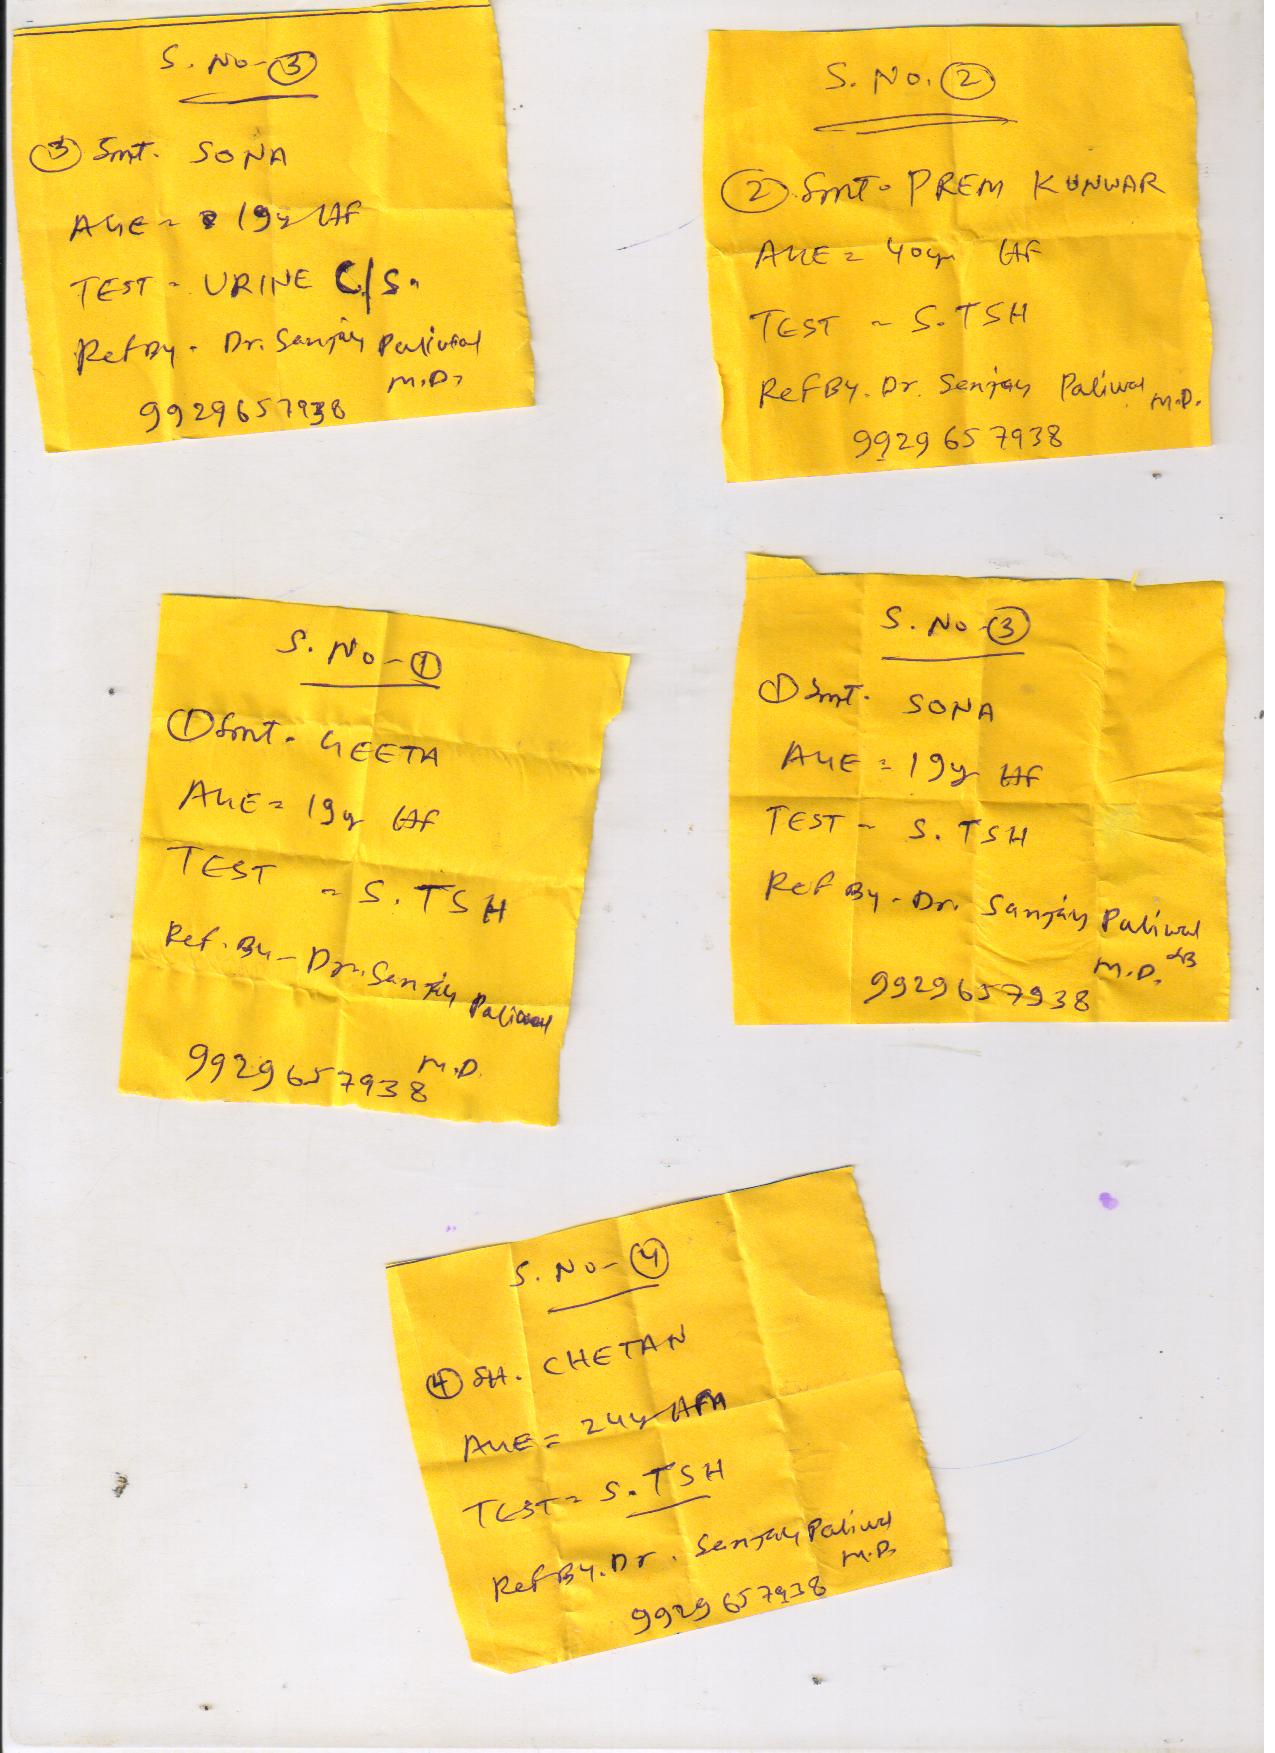 S. No- 3
3 Smt. SONA
AGE = 19y
TEST - URINE C/S.
Ref By - Dr. Sanjay Paliwal
M.D.
9929657938
S. No. 2
2 Smt - PREM KUNWAR
AGE = 40y
TEST - S.TSH
Ref By. Dr. Sanjay Paliwal M.D.
9929657938
S. No - 1
1 Smt - GEETA
AGE = 19y
TEST - S. TSH
Ref. By - Dr. Sanjay Paliwal
M.D.
9929657938
S. No - 3
1 Smt. SONA
AGE = 19y
TEST - S. TSH
Ref By - Dr. Sanjay Paliwal
M.D.
9929657938
S. No - 4
4 SH. CHETAN
AGE = 24y
TEST = S. TSH
Ref By. Dr. Sanjay Paliwal
M.D.
9929657938